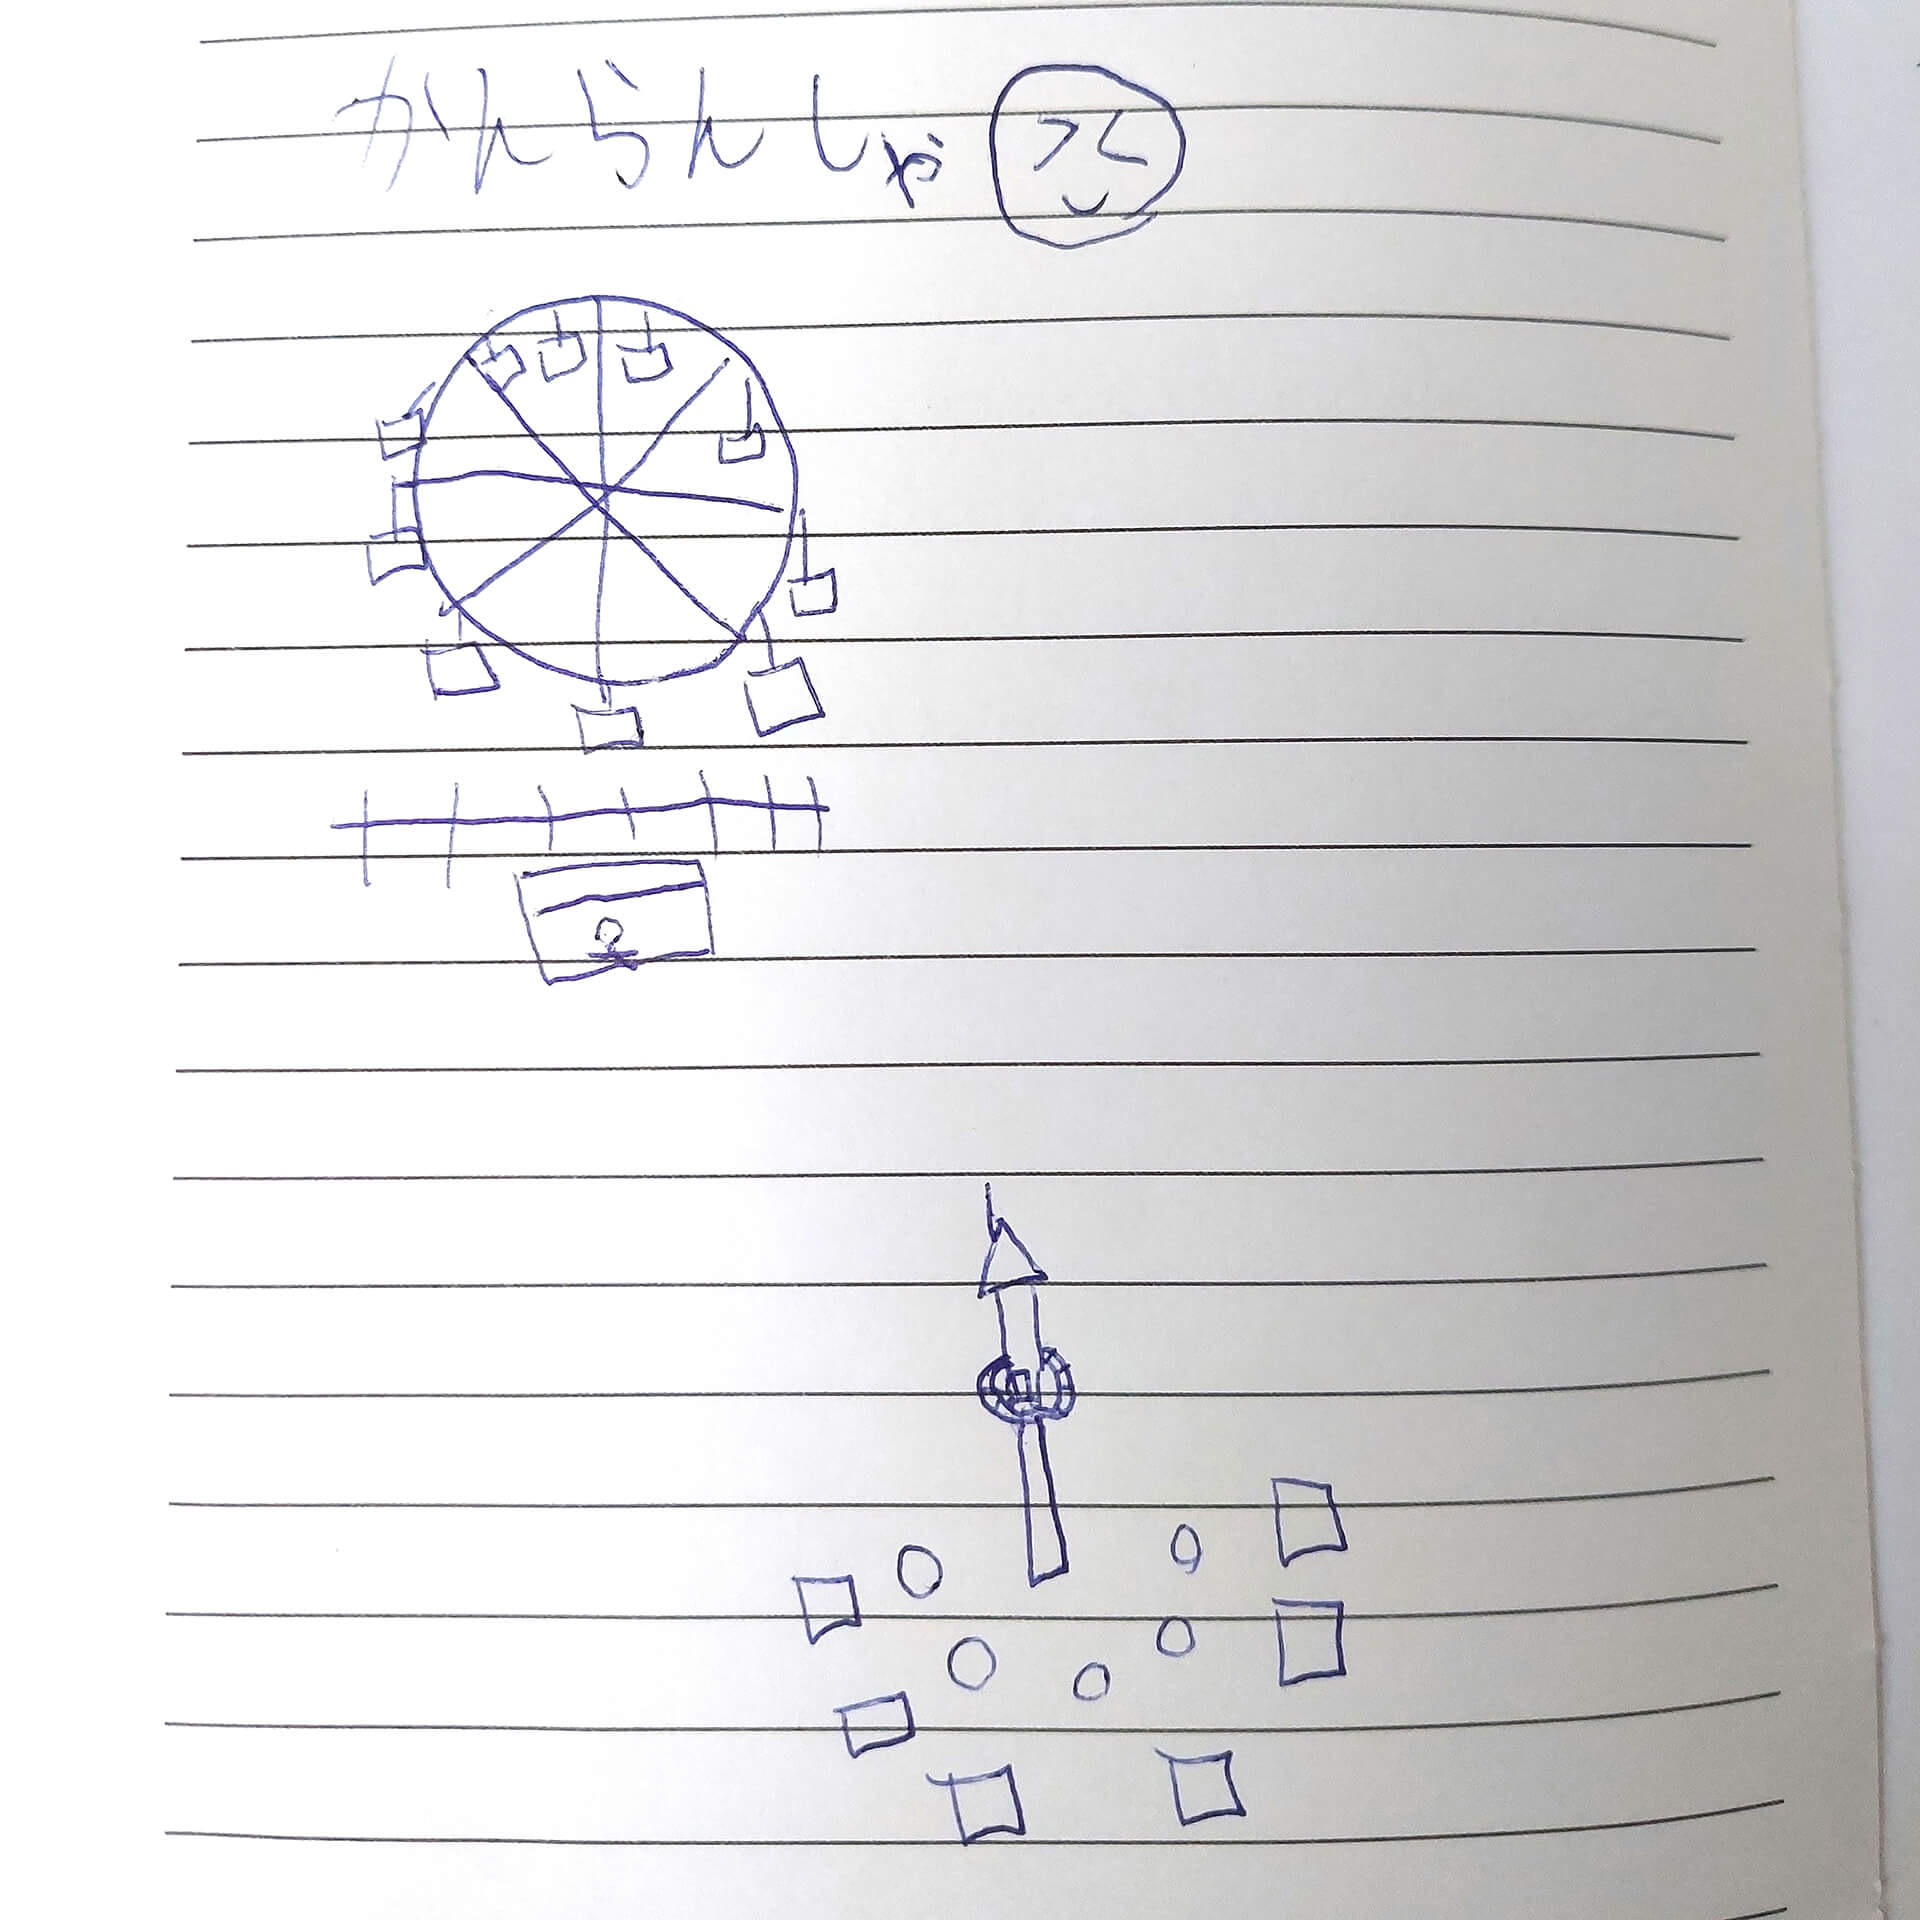 かんらんしゃ